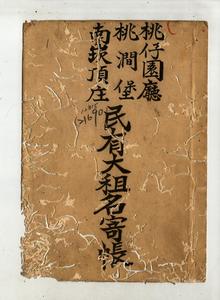 桃仔園廳
桃澗堡
南崁頂庄
民有大租名寄帳